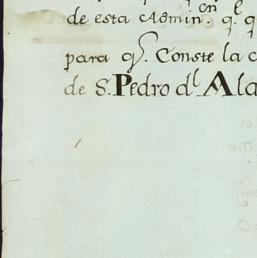 de esta Admin.on q.l q
para q.e Conste la c
de S. Pedro d.l Ala